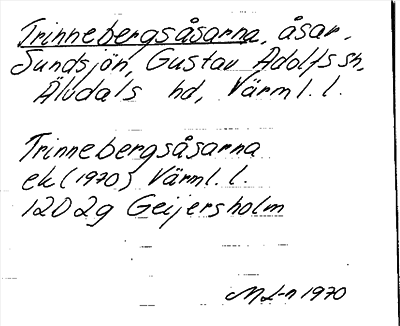 Trinnebergsåsarna, åsar,
Sundsjön, Gustav Adolfs sn,
Älvdals hd, Värml. l.
Trinnebergsåsarna
ek (1970) Värml. l.
12D2g Geijersholm
ML-n 1970